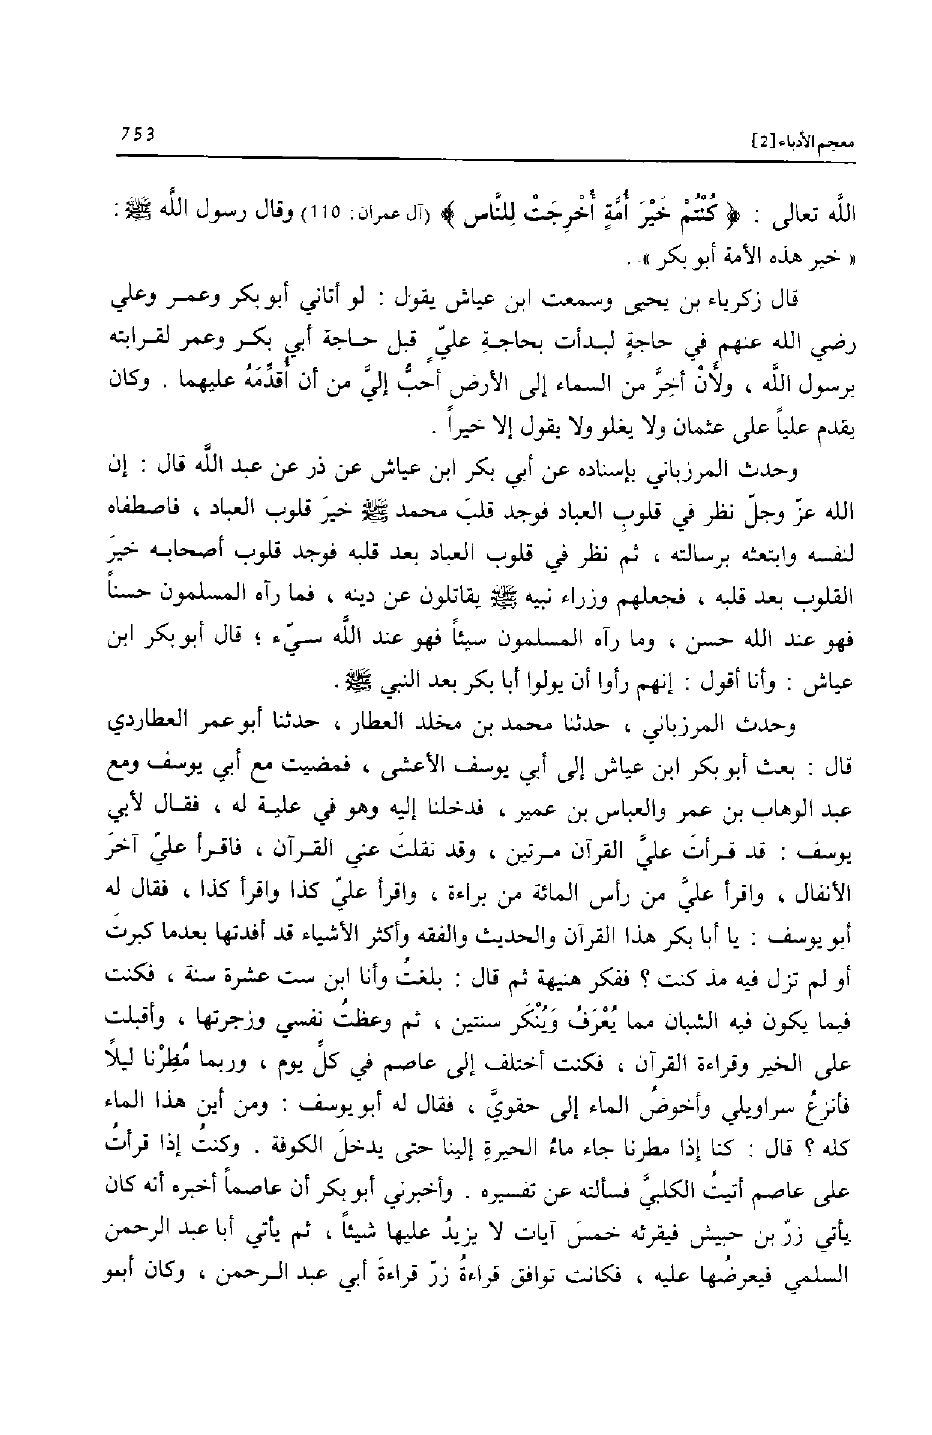 معجم الأدباء [2] 753
الله تعالى : ﴿ كُنْتُمْ خَيْرَ أُمَّةٍ أُخْرِجَتْ لِلنَّاسِ ﴾ (آل عمران: 110) وقال رسول الله ﷺ :
« خير هذه الأمة أبو بكر » .
قال زكرياء بن يحيى وسمعت ابن عياش يقول : لو أتاني أبو بكر وعمر وعلي
رضي الله عنهم في حاجةٍ لبدأت بحاجةِ عليّ قبل حاجة أبي بكر وعمر لقرابته
برسول الله ، ولأنْ أخِرَّ من السماء إلى الأرض أحبُّ إليَّ من أن أُقدِّمَهُ عليهما . وكان
يقدم علياً على عثمان ولا يغلو ولا يقول إلا خيراً .
وحدث المرزباني بإسناده عن أبي بكر ابن عياش عن ذر عن عبد الله قال : إن
الله عزّ وجلّ نظر في قلوب العباد فوجد قلبَ محمد ﷺ خيرَ قلوب العباد ، فاصطفاه
لنفسه وابتعثه برسالته ، ثم نظر في قلوب العباد بعد قلبه فوجد قلوب أصحابه خيرَ
القلوب بعد قلبه ، فجعلهم وزراء نبيه ﷺ يقاتلون عن دينه ، فما رآه المسلمون حسناً
فهو عند الله حسن ، وما رآه المسلمون سيئاً فهو عند الله سيّء ؛ قال أبو بكر ابن
عياش : وأنا أقول : إنهم رأوا أن يولوا أبا بكر بعد النبي ﷺ .
وحدث المرزباني ، حدثنا محمد بن مخلد العطار ، حدثنا أبو عمر العطاردي
قال : بعث أبو بكر ابن عياش إلى أبي يوسف الأعشى ، فمضيت مع أبي يوسف ومع
عبد الوهاب بن عمر والعباس بن عمير ، فدخلنا إليه وهو في علية له ، فقال لأبي
يوسف : قد قرأتَ عليَّ القرآن مرتين ، وقد نقلتَ عني القرآن ، فاقرأ عليّ آخرَ
الأنفال ، واقرأ عليَّ من رأس المائة من براءة ، واقرأ عليّ كذا واقرأ كذا ، فقال له
أبو يوسف : يا أبا بكر هذا القرآن والحديث والفقه وأكثر الأشياء قد أفدتها بعدما كبرتَ
أو لم تزل فيه مذ كنت ؟ ففكر هنيهة ثم قال : بلغتُ وأنا ابن ست عشرة سنة ، فكنت
فيما يكون فيه الشبان مما يُعْرَفُ وَيُنْكَر سنتين ، ثم وعظتُ نفسي وزجرتها ، وأقبلت
على الخير وقراءة القرآن ، فكنت أختلف إلى عاصم في كلّ يوم ، وربما مُطِرْنا ليلاً
فأنزعُ سراويلي وأخوضُ الماء إلى حقويَّ ، فقال له أبو يوسف : ومن أين هذا الماء
كله ؟ قال : كنا إذا مطرنا جاء ماءُ الحيرةِ إلينا حتى يدخلَ الكوفة . وكنتُ إذا قرأتُ
على عاصم أتيتُ الكلبيَّ فسألته عن تفسيره . وأخبرني أبو بكر أن عاصماً أخبره أنه كان
يأتي زرّ بن حبيش فيقرئه خمسَ آيات لا يزيدُ عليها شيئاً ، ثم يأتي أبا عبد الرحمن
السلمي فيعرضُها عليه ، فكانت توافق قراءةُ زرّ قراءةَ أبي عبد الرحمن ، وكان أبو